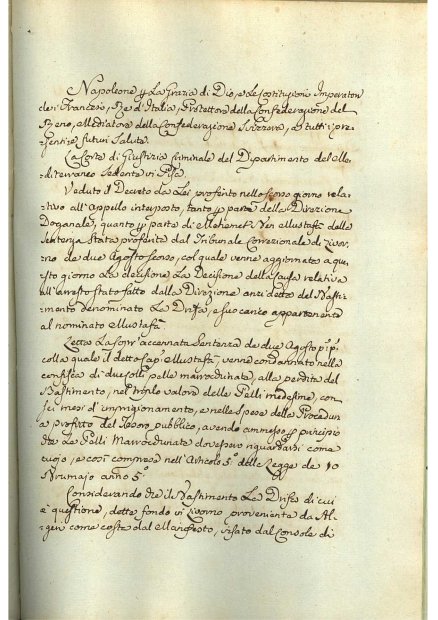 Napoleone p. La Grazia di Dio, e Le Costituzioni Imperator
de i Francesi, Re d'Italia, Protettore della Confederazione del
Reno, Mediatore della Confederazione Svizzera, a tutti i pre-
senti e futuri Salute.
La Corte di Giustizia Criminale del Dipartimento del Me-
diterraneo Sedente in Pisa.
Veduto il Decreto da Lei proferito nello stesso giorno rela-
tivo all'Appello interposto, tanto p. parte della Direzione
Doganale, quanto p. parte di Mehemet Ben Mustafà dalla
Sentenza Stata proferita dal Tribunale Correzionale di Livor-
no de due Agosto scorso, col quale venne aggiornata a que-
sto giorno ora decisione La Decisione della causa relativa
all'arresto stato fatto dalla Direzione anzi detta del Basti-
mento denominato La Drisa, e suo carico appartenente
al nominato Mustafà.
Letta La sopr'accennata Sentenza de due Agosto p.p.
colla quale il detto Mustafà venne condannato nella
confisca di due colli pelle marrocchinate, alla perdita del
Bastimento, nel triplo valore delle Pelli medesime, con
sei mesi d'imprigionamento, e nelle Spese della Procedura
a profitto del Tesoro pubblico, avendo ammesso p. principio
che Le Pelli Marrocchinate dovessero riguardarsi come
cuojo, e così comprese nell'Articolo 5.° della Legge de 10
Brumajo anno 5.°
Considerando che il Bastimento La Drisa di cui
è questione, dette fondo in Livorno proveniente da Al-
geri come costa dal Manifesto, visato dal Console di